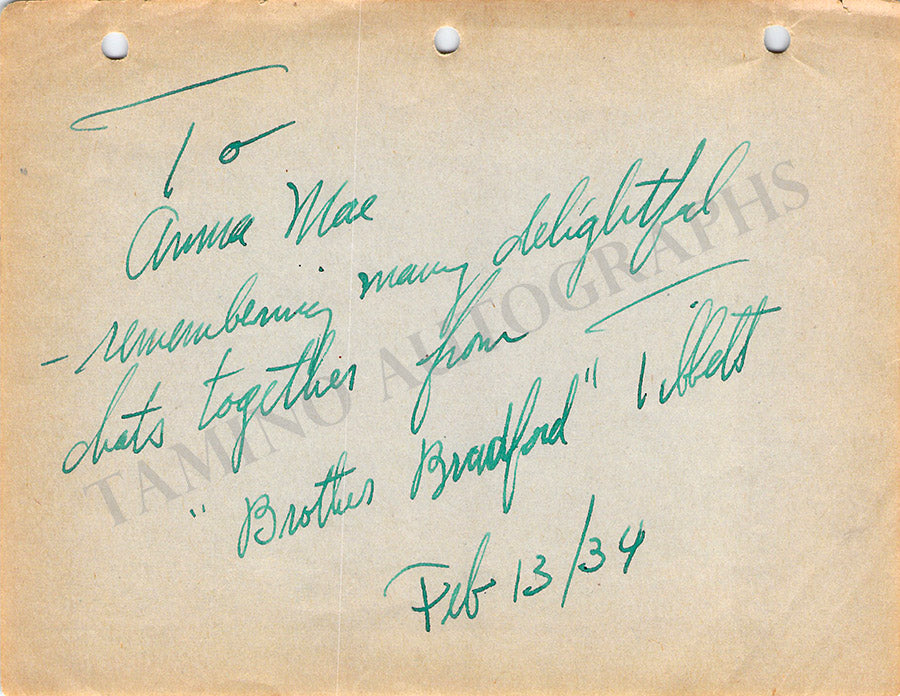 To
Anna Mae
- remembering many delightful
chats together from
"Brother Bradford" Tibbett
Feb 13/34
TAMINO AUTOGRAPHS